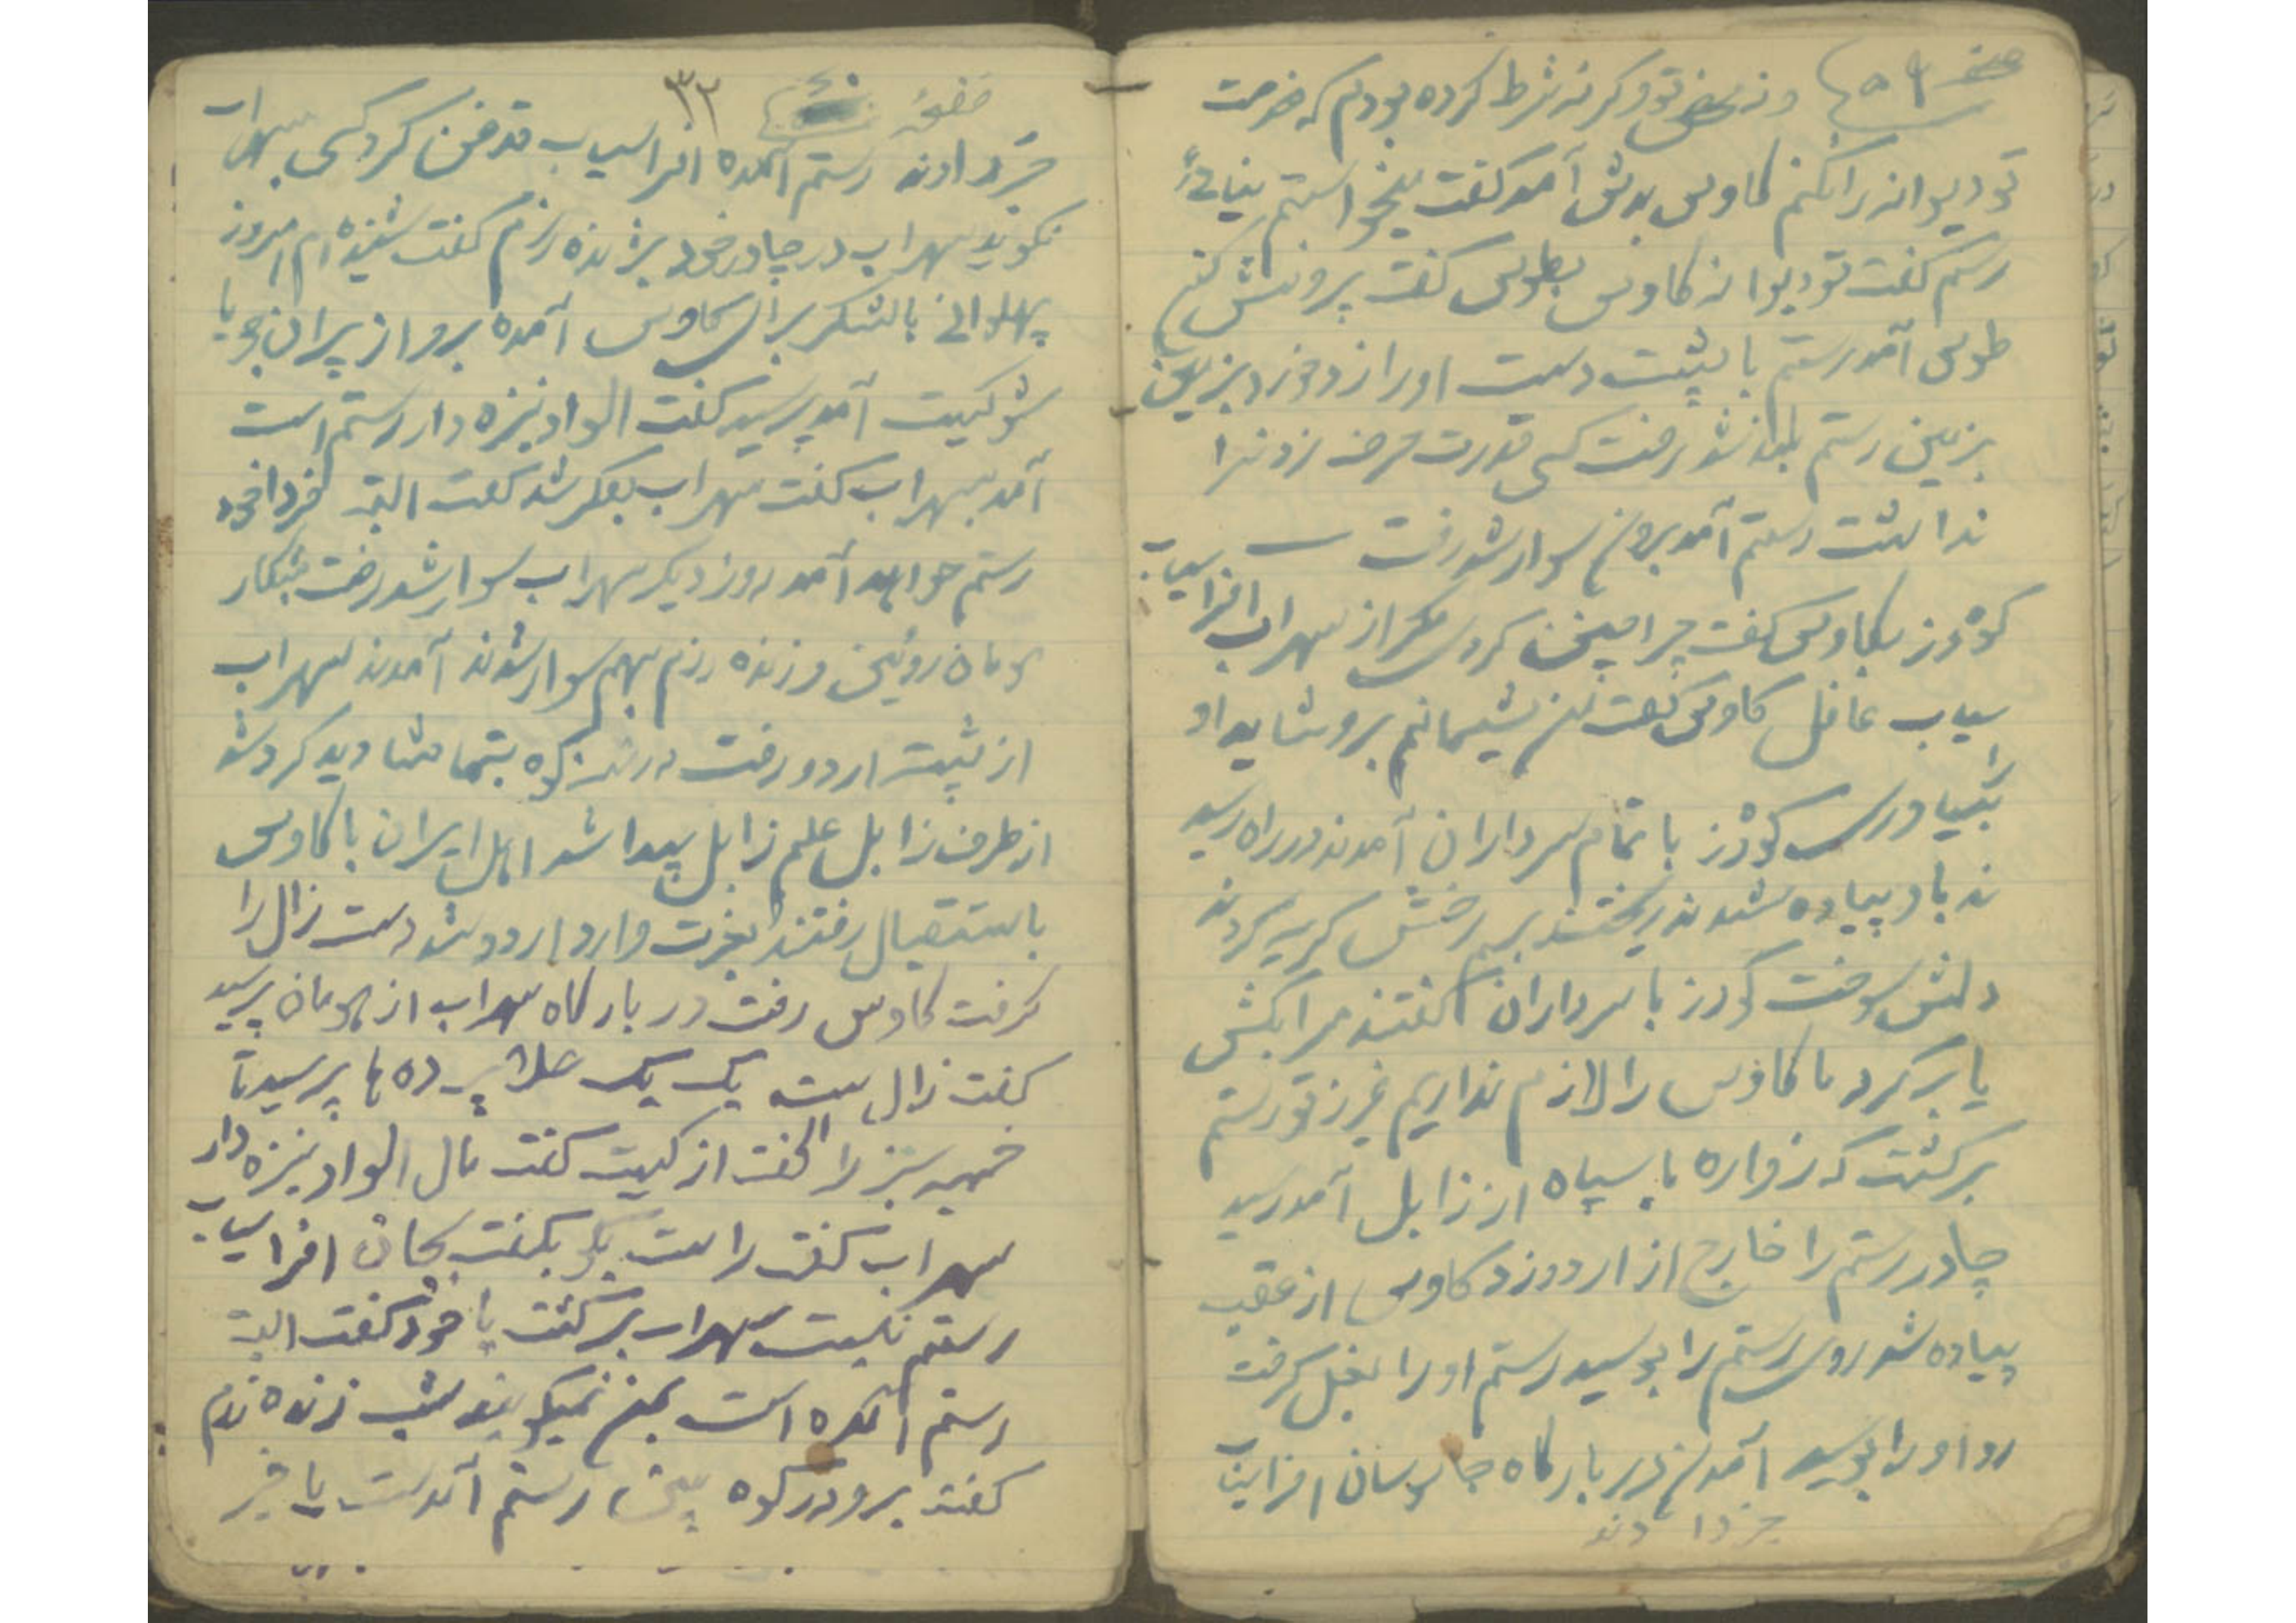 صفحه ۵۹ و نه بعض تو و گر نه شرط کرده بودم که خدمت
تو دیوانه را نکنم کاوس بدش آمد گفت میخواستم نیائی
رستم گفت تو دیوانه کاوس بطوس گفت بیرونش کن
طوس آمد رستم با پشت دست او را زد خورد بزمین
بزمین رستم بلند شد رفت کسی قدرت حرف زدن را
نداشت رستم آمد بیرون سوار شد رفت
گودرز بکاوس گفت چرا چنین کردی مگر از سهراب افراسیاب
سیاب غافل کاوس گفت من پشیمانم برو شاید او
را بیاوری گودرز با تمام سرداران آمدند در راه رسید
ند باو پیاده شدند ریختند بر رخش گریه کردند
دلش سوخت گودرز با سرداران گفتند مرا بکش
یا برگرد ما کاوس را لازم نداریم غرز تو رستم
برگشت که زواره با سپاه از زابل آمد رسید
چادر رستم را خارج از اردو زد کاوس از عقب
پیاده شد روی رستم را بوسید رستم او را بغل گرفت
رو او را بوسید آمدند در بارگاه جاسوسان افراسیاب
خبر دادند
صفحه ۳۲
خبر دادند رستم آمده افراسیاب قدغن کرد کسی بسهراب
نگویند سهراب در چادر خود بژنده رزم گفت شنیده ام امروز
پهلوانی با لشکر برای کاوس آمده برو از پیران جویا
شو کیست آمد پرسید گفت الواد نیزه دار رستم است
آمد بسهراب گفت سهراب بفکر شد گفت البته فردا خود
رستم خواهد آمد روز دیگر سهراب سوار شد رفت شکار
هومان روئین و زنده رزم بهم سوار شدند آمدند سهراب
از پشت اردو رفت در کوه بتماشا دید گرد شد
از طرف زابل علم زابل پیدا شد اهل ایران با کاوس
باستقبال رفتند بعزت وارد اردو شد دست زال را
گرفت کاوس رفت در بارگاه سهراب از هومان پرسید
گفت زال است یک یک علا پرده ها پرسید تا
خمیه سبز را گفت از کیست گفت مال الواد نیزه دار
سهراب گفت راست بگو بگفت بجان افراسیاب
رستم نیست سهراب برگشت با خود گفت البته
رستم آمده است بمن نمیگویند شب زنده رزم
گفت برو در کوه ببین رستم آمدست یا خیر